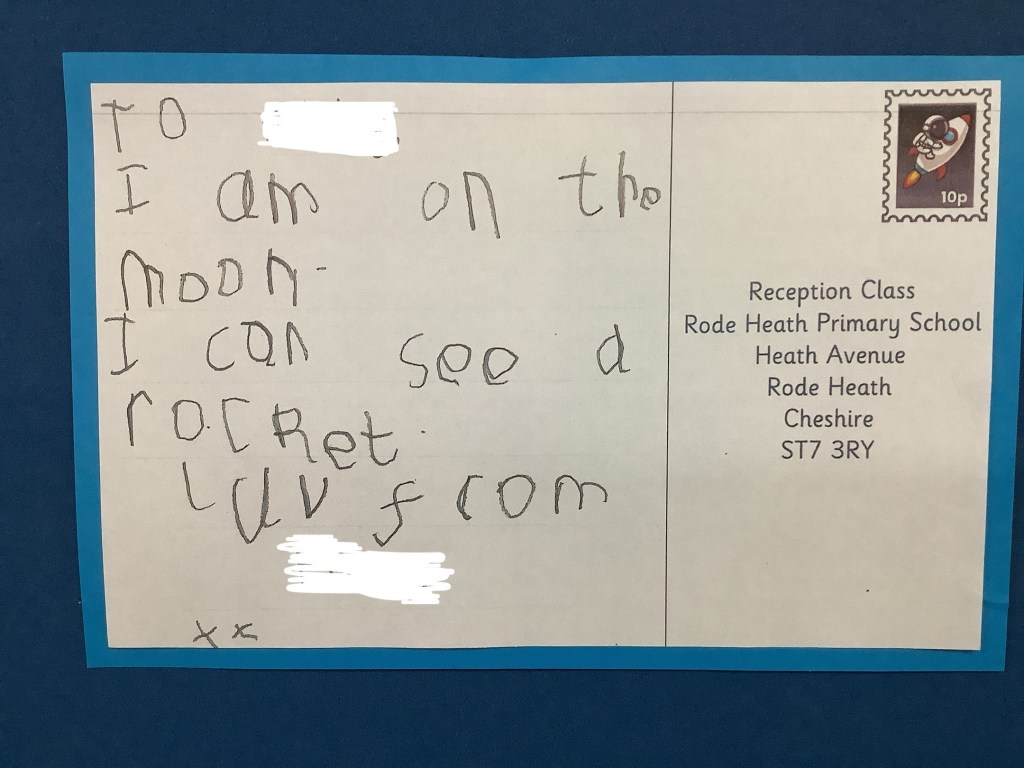 To
I am on the
moon.
I can see a
rocket.
luv from
xx
10p
Reception Class
Rode Heath Primary School
Heath Avenue
Rode Heath
Cheshire
ST7 3RY